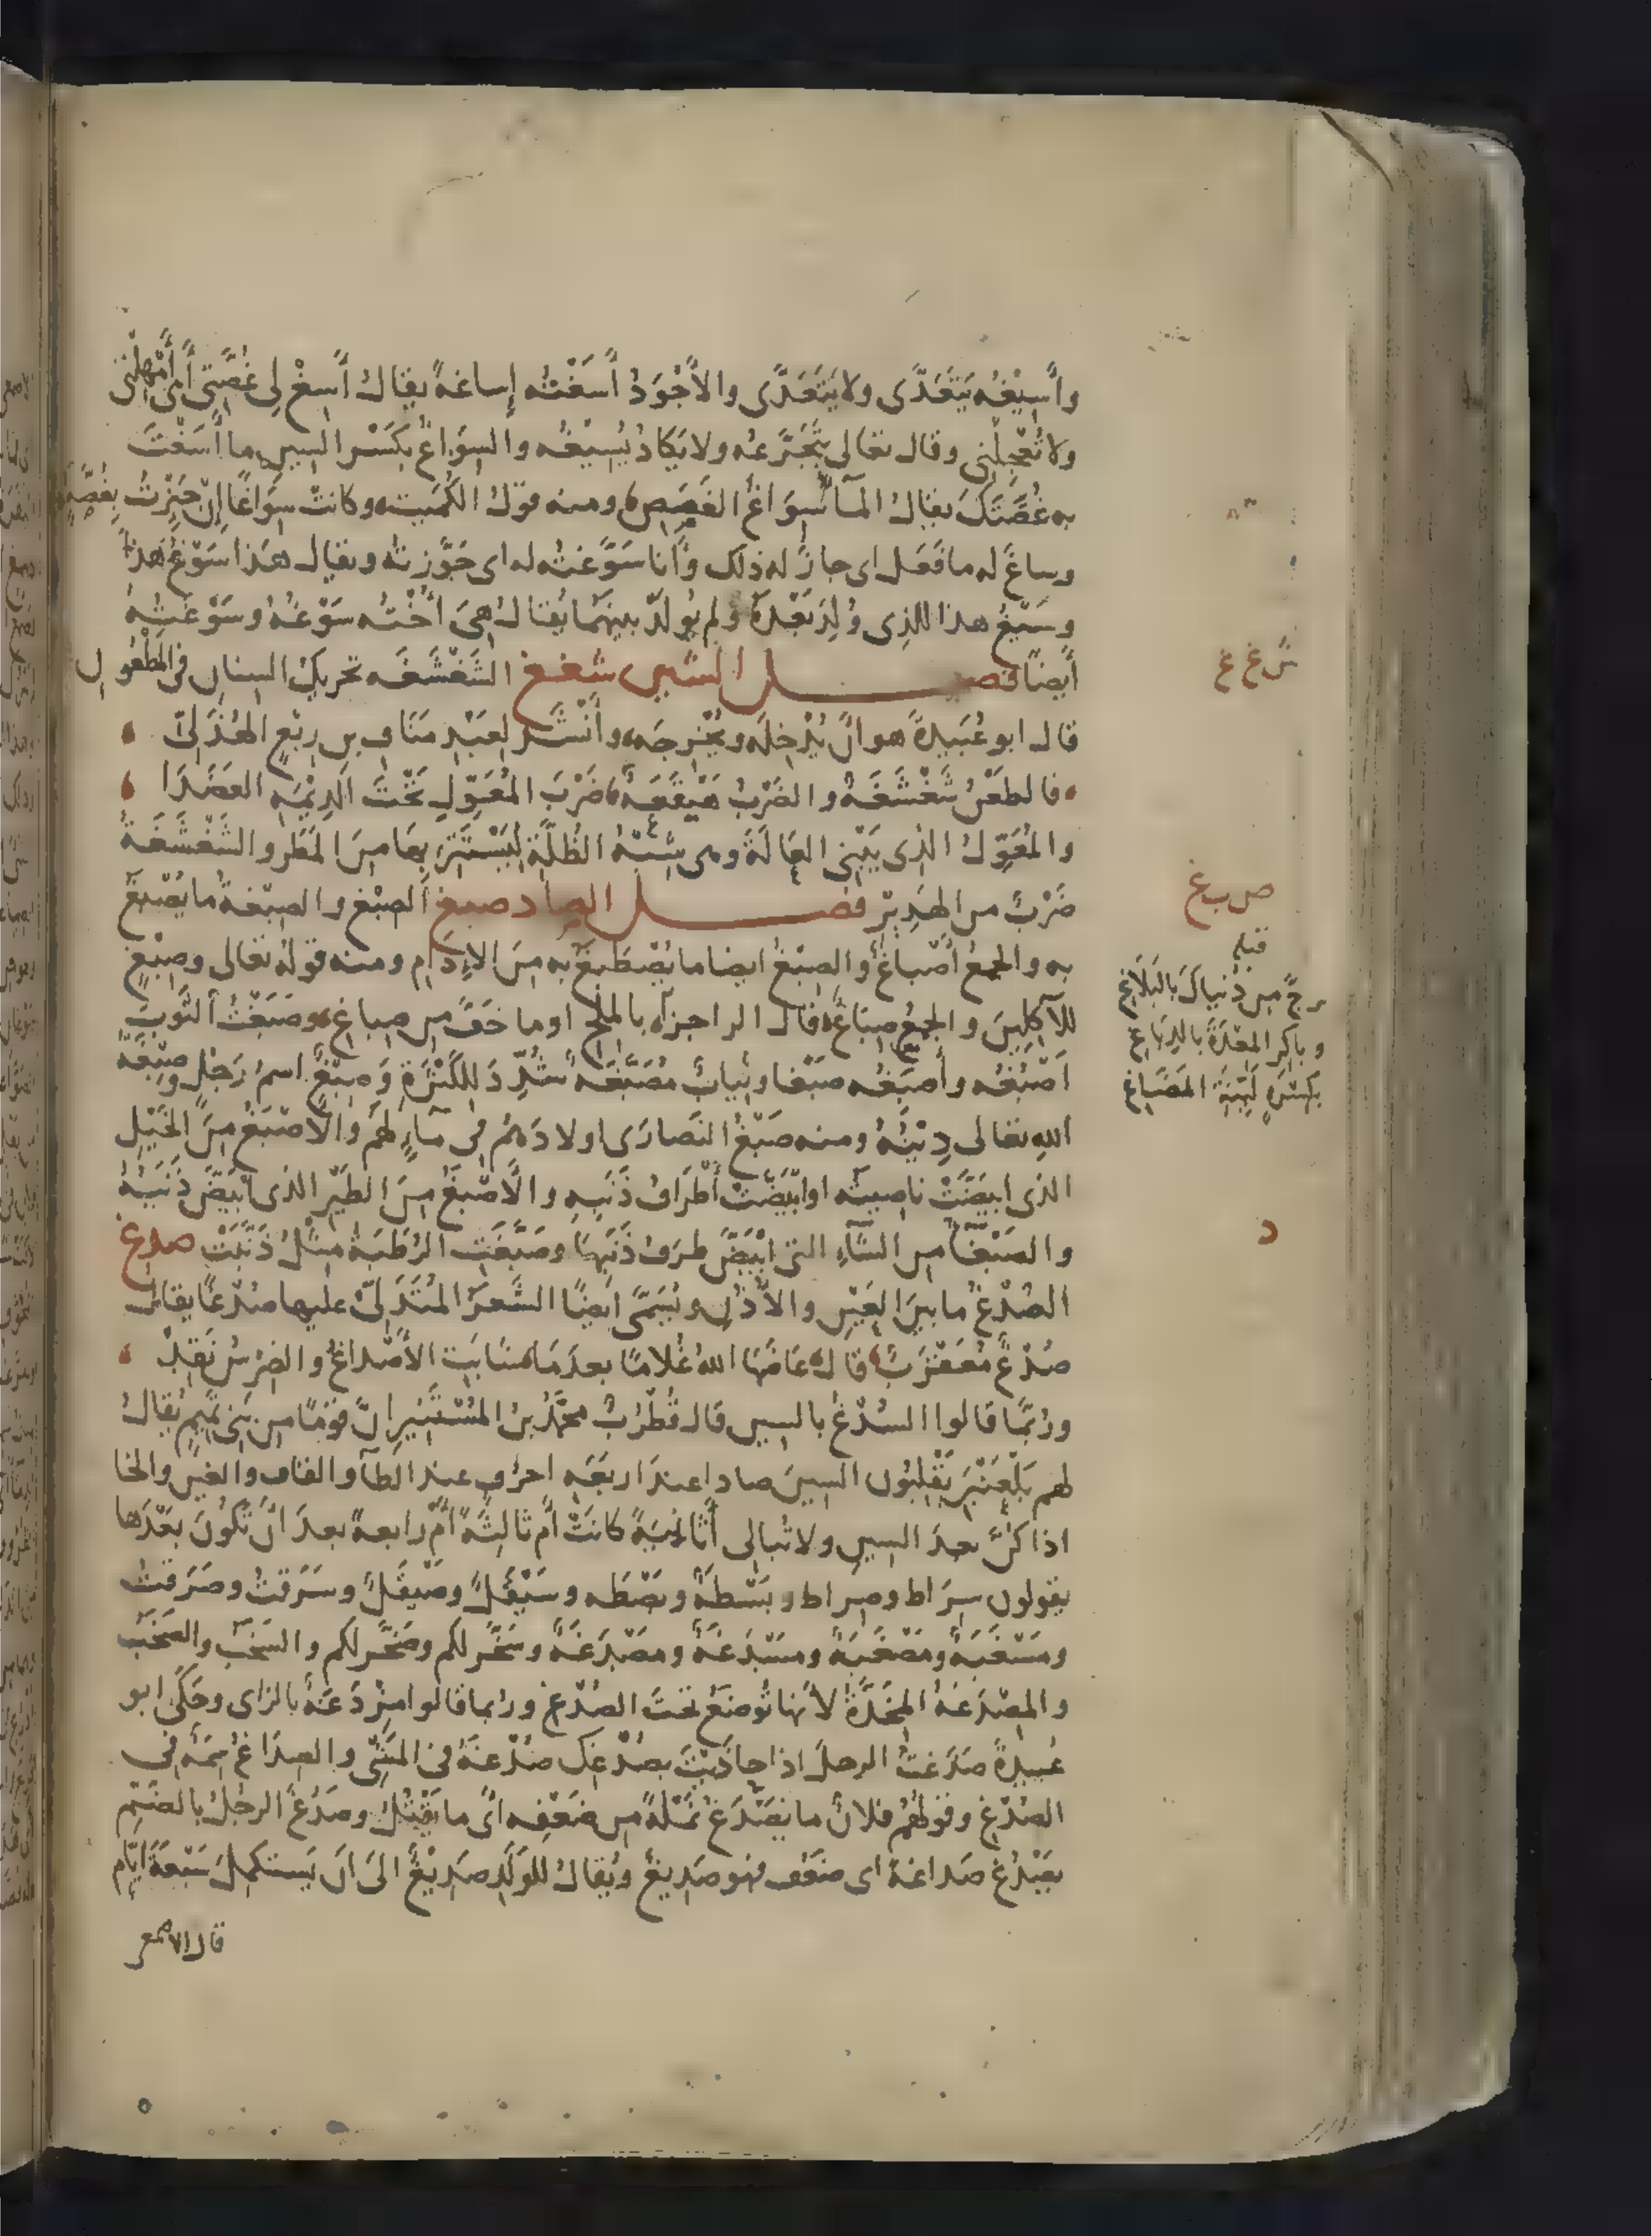 وأَسِيغُه يَتَعَدَّى ولا يَتَعَدَّى والأَجْوَدُ أَسَغْتُه إِساغةً يقالُ أَسِغْ لِى غُصَّتِى أَى أَمْهِلْنِى
ولا تُعْجِلْنِى وقال تعالى يَتَجَرَّعُه ولا يَكادُ يُسِيغُه والسِوَاغُ بكَسْرِ السينِ ما أَسَغْتَ
به غُصَّتَكَ يقالُ المآءُ سِوَاغُ الغُصَصِ ومنه قولُ الكُمَيتِ وكانتْ سِوَاغًا إِنْ جَئِزْتُ بِغُصَّةٍ
وساغَ له ما فَعَل اى جازَ له ذلك وأَنا سَوَّغتُه له اى جَوَّزتُه ويقال هذا سَوْغُ هذا
وسَيْغُ هذا للذى وُلِدَ بَعْدَهُ ولم يُولَدْ بينهما يُقالُ هِىَ أُخْتُه سَوْغُهُ وسَوْغَتُهُ
أيضًا فصل الشين شغغ الشَغْشَغَه تحريكُ السِنانِ فى المَطْعُونِ
قال ابو عُبَيدةَ هو أَنْ يُدْخِلَه ويُخْرِجَه وأَنْشَد لعَبْدِ مَنَافِ بنِ رِبْعٍ الهُذَلِىّ
فالطَعْنُ شَغْشَغَةٌ والضَرْبُ هَيْقَعَةٌ ضَرْبَ المُعَوِّلِ تَحْتَ الدِيْمَةِ العَضَدَا
والمُعَوِّلُ الذى يَبْنِى العَالَةَ وهى شِبْهُ الظُلَّةِ ليُسْتَتَرَ بها مِنَ المَطَرِ والشَغْشَغَةُ
ضَرْبٌ من الهَدِيرِ فصل الصاد صبغ الصِبْغُ والصِبْغةُ ما يُصْبَغُ
به والجمعُ أَصْباغٌ والصِبْغُ ايضا ما يُصْطَبَغُ به مِنَ الإِدَامِ ومنه قولُه تعالى وصِبْغٍ
للآكِلِينَ والجمعُ صِبَاغٌ قال الراجزُ بالمِلْحِ اوما خَفَّ من صِباغِ وصَبَغْتُ الثَوبَ
اَصْبُغُه وأَصبَغُه صبْغا وثيابٌ مُصَبَّغَه شُدِّدَ للكَثْرَةِ وَصِبْغٌ اسمُ رَجُلٍ وصِبْغَةُ
اللهِ تعالى دِيْنُهُ ومنه صَبْغُ النَصارَى اولادَهُم فى مآءٍ لهم والأَصْبَغُ مِنَ الخَيْلِ
الذى ابيَضَّتْ ناصِيتُه او ابْيَضَّتْ أَطْرَافُ ذَنَبِهِ والأَصْبَغُ مِنَ الطَيْرِ الذى ابْيَضَّ ذَنَبُهُ
والصَبْغآءُ من الشآءِ التى ابْيَضَّ طَرَفُ ذَنَبِها وصَبَّغَتِ الرُطَبَةُ مِثْلُ ذَنَّبَتْ صدغ
الصُدْغُ ما بينَ العَيْنِ والأُذُنِ ويُسَمَّى ايضًا الشَعرُ المُتَدَلِّى عليها صُدْغًا يقالُ
صُدْغٌ مُعَقْرَبٌ قال عَاضَها اللهُ غُلامًا بعدَ مَا شَابَتِ الأَصْداغُ والضِرْسُ نَقِدْ
ورُبَّما قالوا السُدْغُ بالسين قال قُطْرُبٌ محمَّدُ بنُ المُسْتَنِيرِ انَّ قومًا من بَنِى تَمِيمٍ يُقالُ
لهم بَلْعَنْبَرِ يَقْلِبُون السينَ صادا عندَ اربَعَةِ احرُفٍ عند الطآءِ والقافِ والغينِ والخاءِ
اذا كُنَّ بعدَ السينِ ولا تُبالى أَثانِيَةً كانَتْ أَم ثالثةً أَم رابعةً بعدَ أَنْ تَكُونَ بَعْدَها
يقولون سِرَاط وصِراط وبَسْطَةً وبَصْطَه وسَيْقَلٌ وصَيقَلٌ وسَرَقتُ وصَرَقتُ
ومَسْغَبَةٌ ومَصْغَبَةٌ ومسْدَغَةٌ ومصْدَغَةٌ وسَخَّرلكم وصَخَّرلكم والسَخَبُ والصَخَبُ
والمِصْدَغةُ المِخَدَّةُ لأَنها تُوضَعُ تحتَ الصُدْغِ وربما قالوا مِزْدَغَةٌ بالزاى وحَكَى ابو
عُبيدةَ صَدَغتُ الرجلَ اذا حاذَيْتَ بصُدْغِك صُدْغَهُ فى المَشْىِ والصِدَاغُ سِمَةٌ فى
الصُدْغِ وقولُهُم فلانٌ ما يَصْدَغُ نَمْلَةً من ضَعْفِه أى ما يَقْتُلُ وصَدُغَ الرجلُ بالضَمِّ
يصْدُغُ صَداغةً اى ضَعُف فهو صَدِيغٌ ويُقالُ للوَلَدِ صَدِيْغٌ الىَ انْ يَستكمِلَ سَبْعَةَ ايَّامٍ
قال الاصمعى
ش غ غ
ص ب غ
قبله
تزجَّ من دُنياكَ بالبَلاغِ
وباكِرِ المِعْدَةَ بالدِبَاغِ
بكسْرةٍ لَيِّنَةِ المَضَاغِ
د